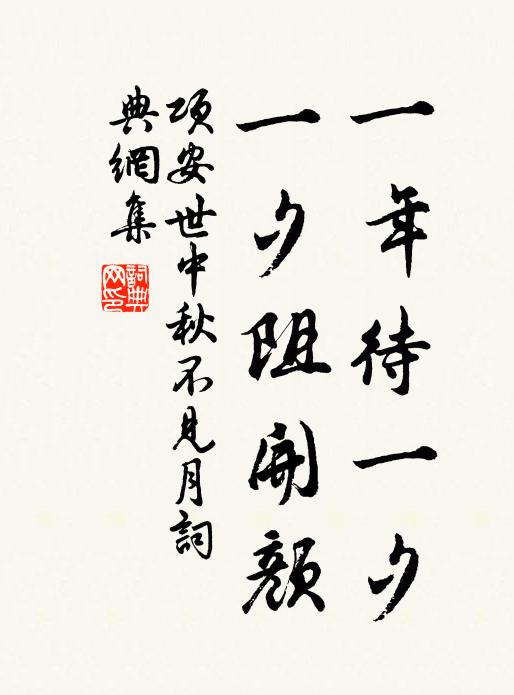 一年待一夕
一夕阻開顏
項安世中秋不見月詞
典網集
詞典
网印